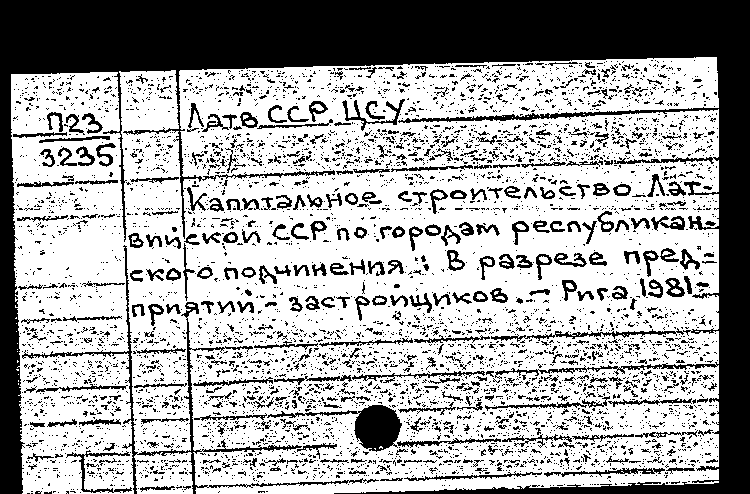 П23
3235
Латв ССР. ЦСУ.
Капитальное строительство Лат-
вийской ССР по городам республикан-
ского подчинения : В разрезе пред-
приятий - застройщиков. - Рига, 1981-